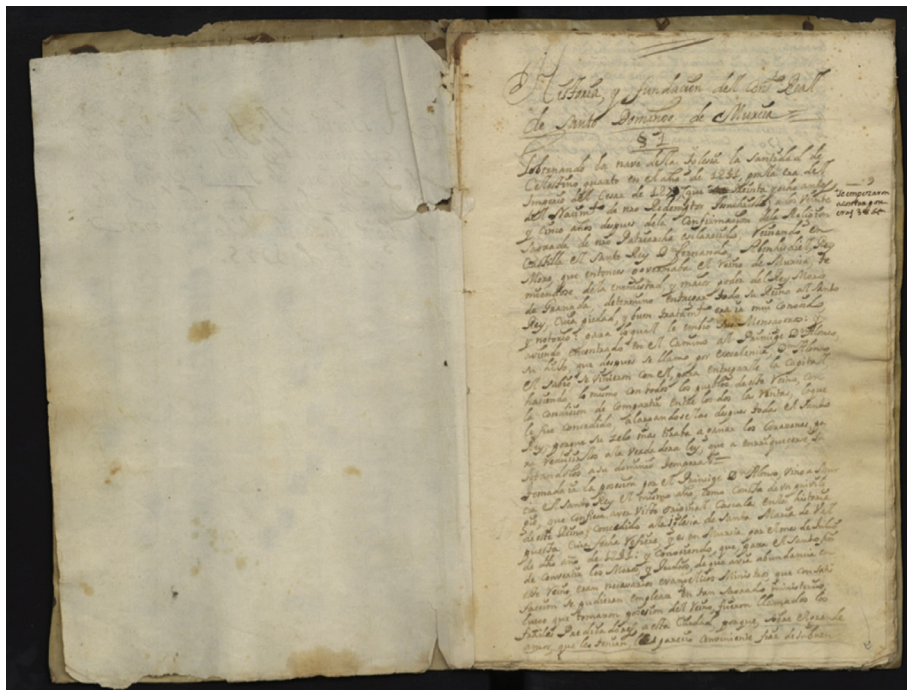 Historia, y fundacion del Conv.to Real
de Santo Domingo de Murcia
§ 1
Governando la nave de la Iglesia la Santidad de
Celestino quarto en el año de 1241, por la era del
Imperio del Cesar de 1279 que treinta y ocho antes
del Nacim.to de nro Redemptor Jesuchristo, años veinte
y cinco años despues de la Confirmacion de la Religion
sagrada de nro Patriarcha esclarecido, Reinando en
Castilla el Santo Rey D. Fernando, Rey
Moro, que entonces governaba el Reino de Murcia, te
miendose de la enemistad, y maior poder del Rey Moro
de Granada, determino entregar todo su Reino al Santo
Rey, cuia piedad, y buen tratam.to era mui conocido,
y notorio: para lo qual le embio sus Mensageros:
aviendo encontrado en el Camino al Principe D. Alonso,
su hijo, que despues se llamo por excelencia, D. Alonso
el Sabio, se vinieron con el, para entregarle la Capital,
haciendo lo mismo con todos los pueblos de este Reino, con
la condicion de compartir entre los dos las Rentas, lo que
le fue concedido, alargandose las despues todas el Santo
Rey, porque su zelo mas tiraba a ganar los Corazones, pa
ra reducirlos a la verdadera ley, que a enriquecerse
su dominio
Tomada la posesion por el Principe D. Alonso, vino a Mur
cia el Santo Rey el mismo año, como consta de un privile
gio, que confiesa aver visto original Cascales en la historia
de este Reino, concedido a la Iglesia de Santa Maria de Val
puesta, cuia fecha refiere, que es en Murcia, por el mes de Julio
de dho año de 1241: y conociendo, que para el Santo fin
de convertir los Moros, y Judios, de que avia abundancia en
este Reino, eran necesarios evangelicos Ministros que con satis
faccion se pudiesen emplear en tan Sagrado ministerio,
luego que tomaron posesion del Reino, fueron llamados los
frailes Predicadores, a esta Ciudad, porque, sobre el grande
amor, que les tenian, les parecio conveniente fiar de su buen
Se empezaron
a contar por
eras